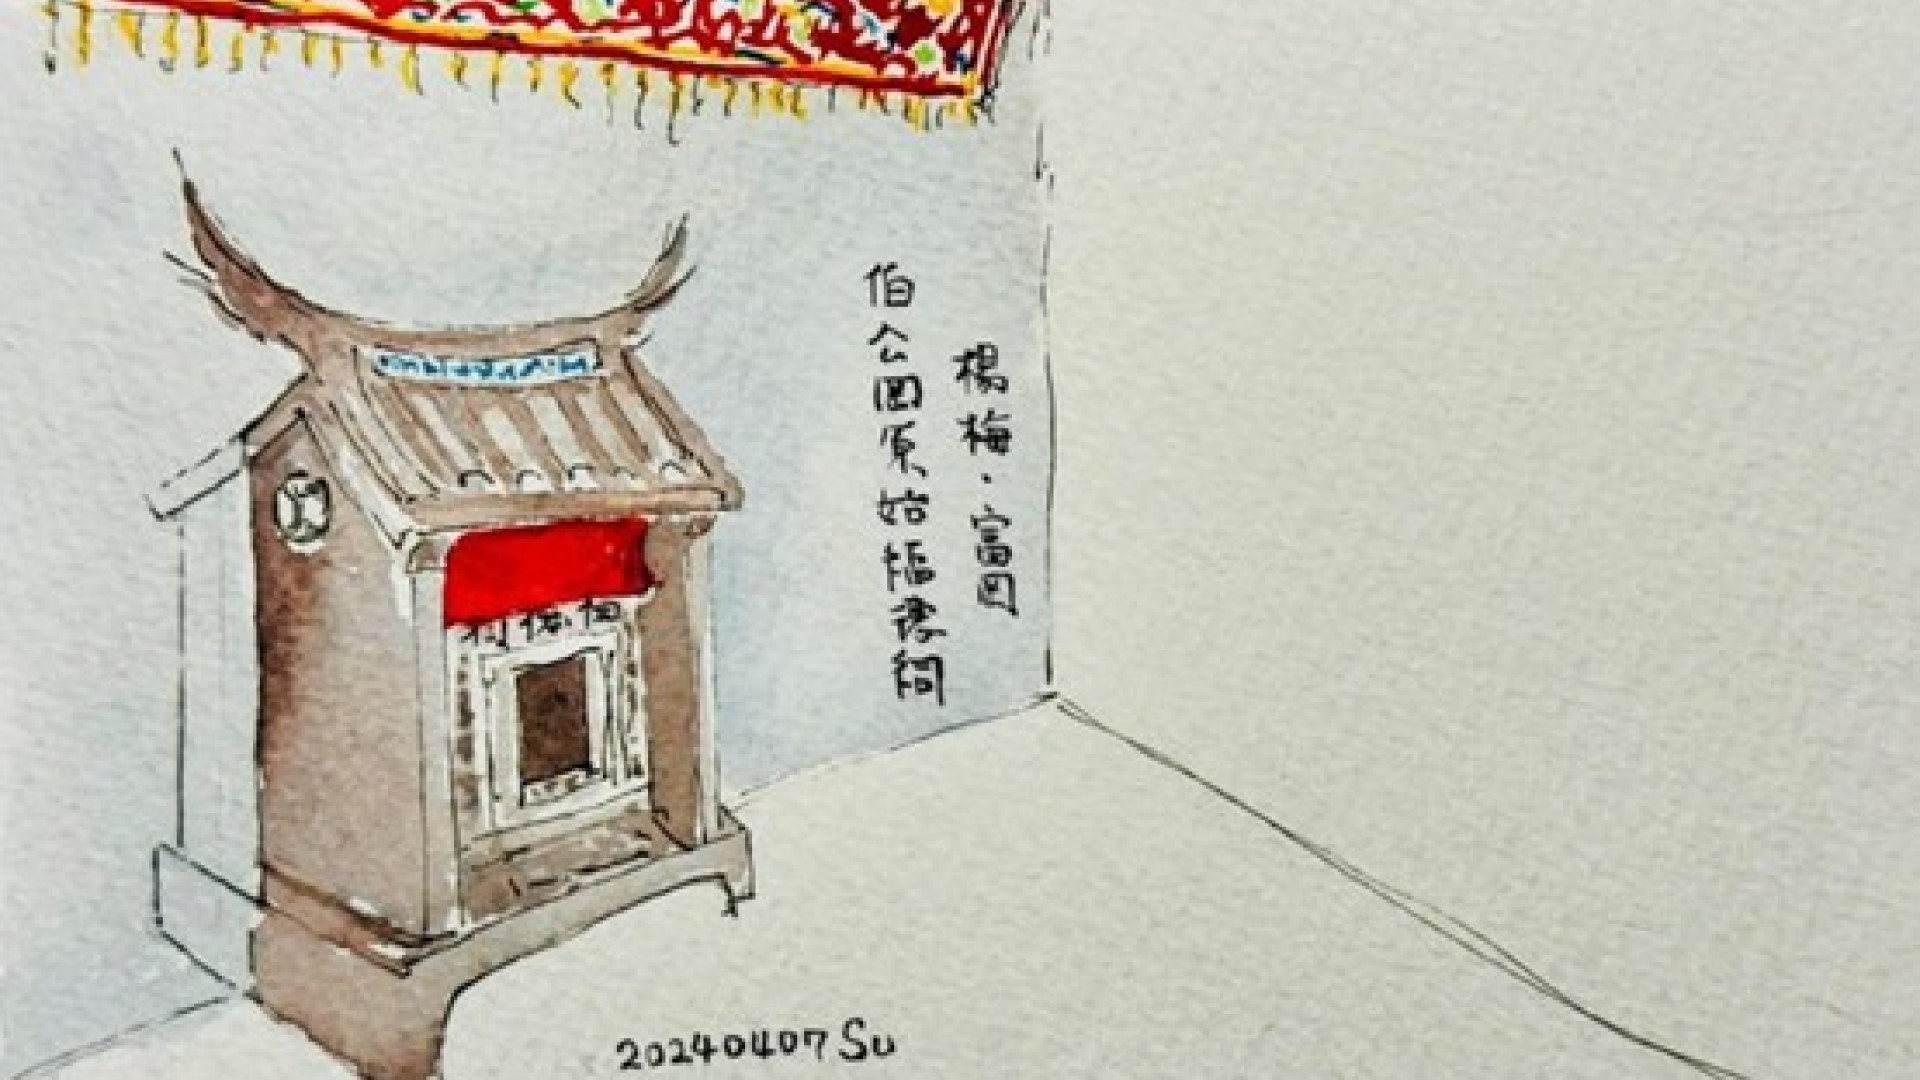 楊梅·富岡
伯公岡原始福德祠
福德祠
20240407 Su